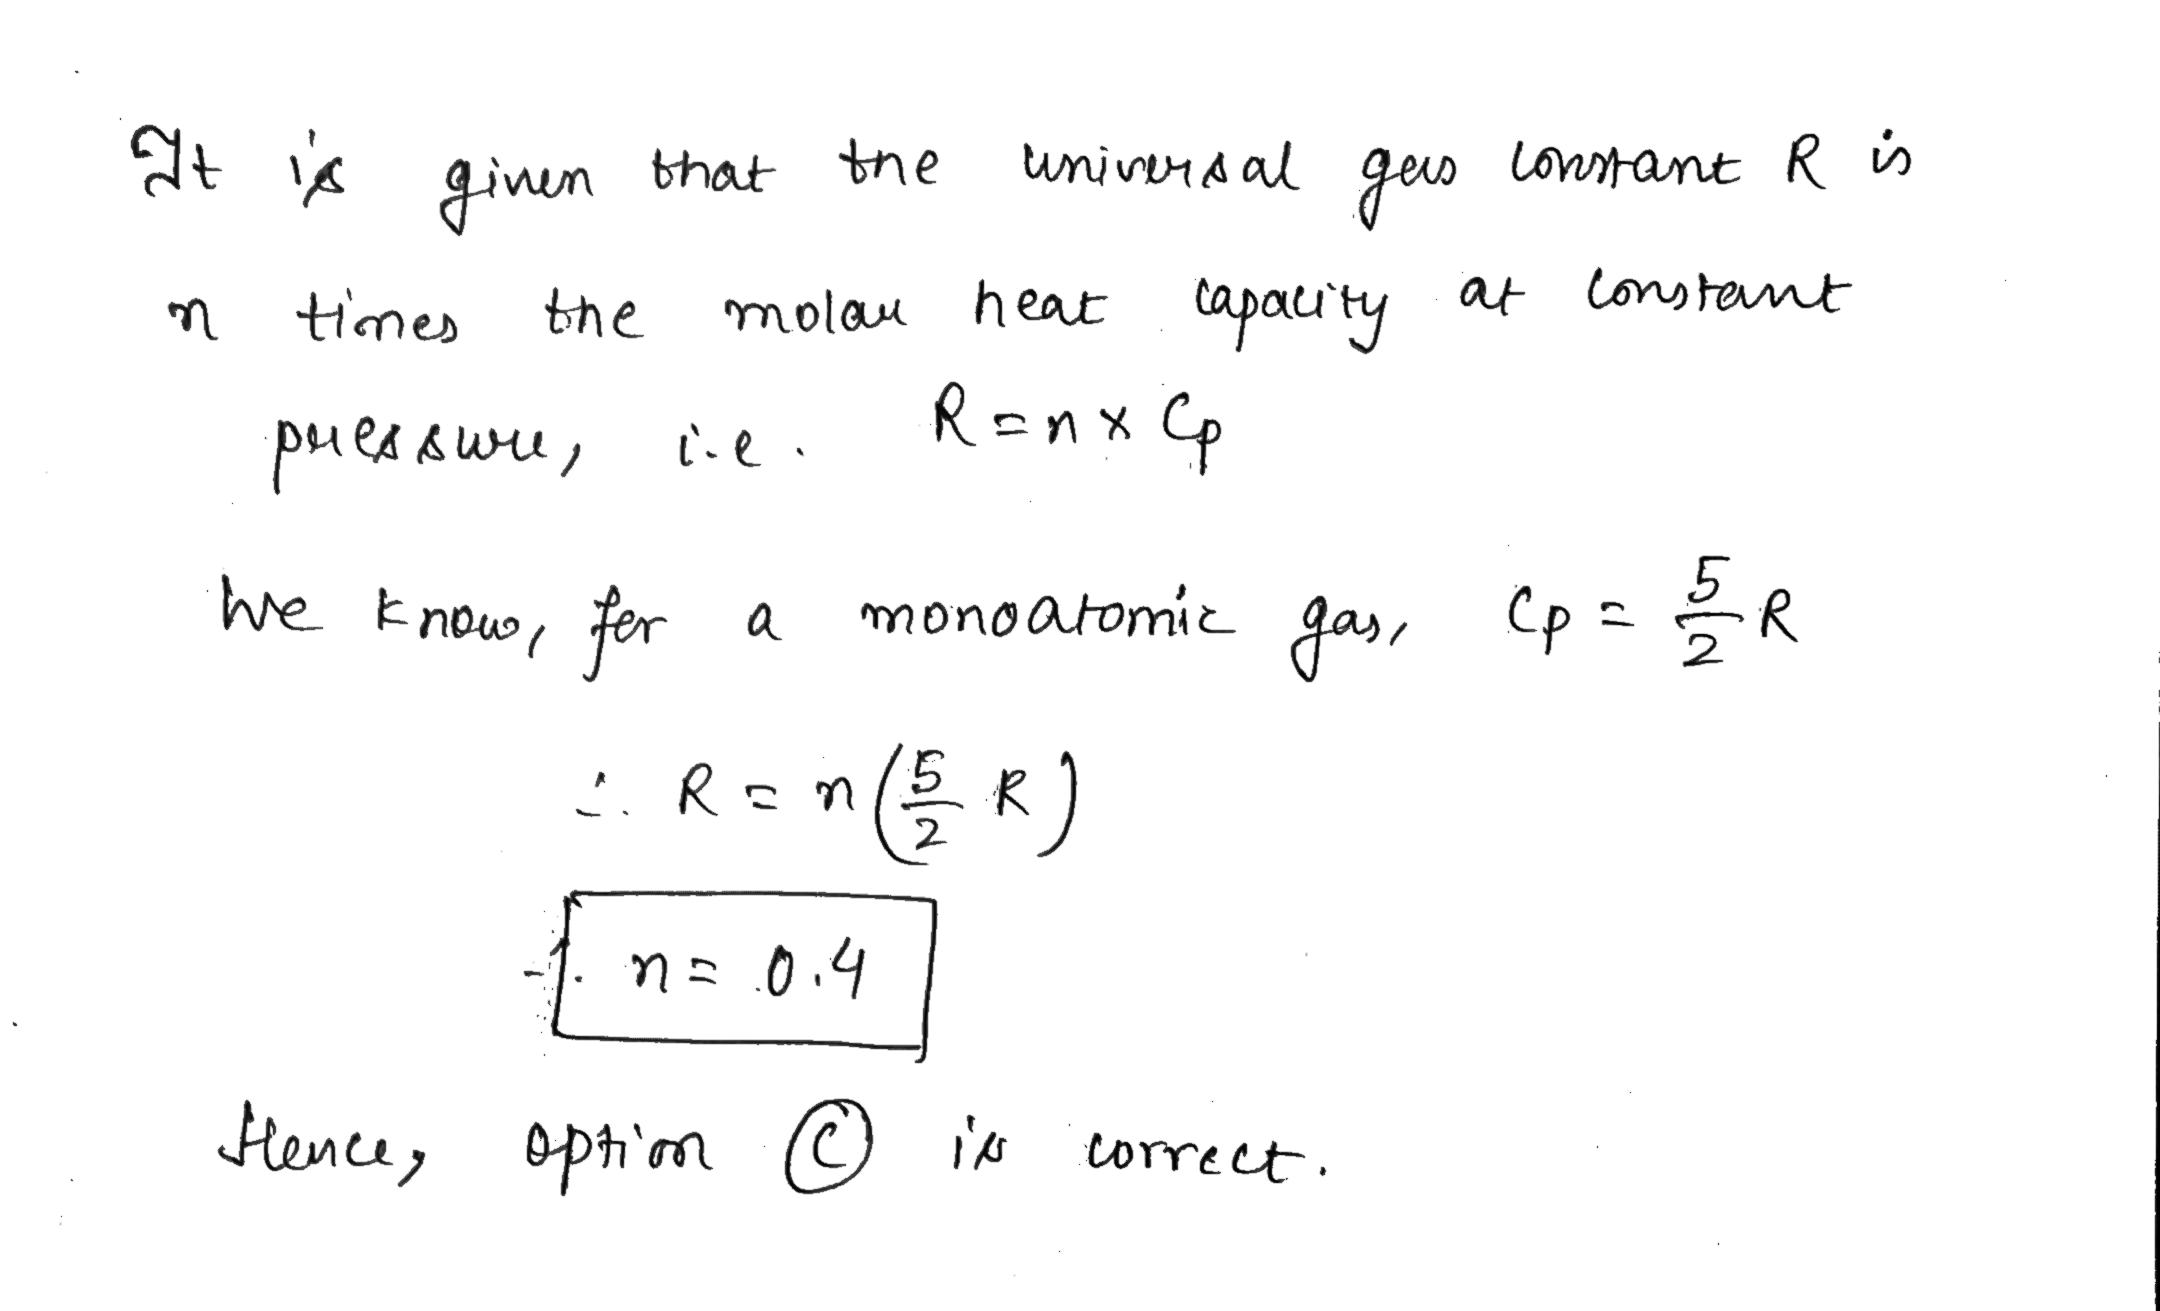 It is given that the universal gas constant R is
n times the molar heat capacity at constant
pressure, i.e. R = n × Cp
We know, for a monoatomic gas, Cp = 5/2 R
∴ R = n(5/2 R)
∴ n = 0.4
Hence, option (C) is correct.